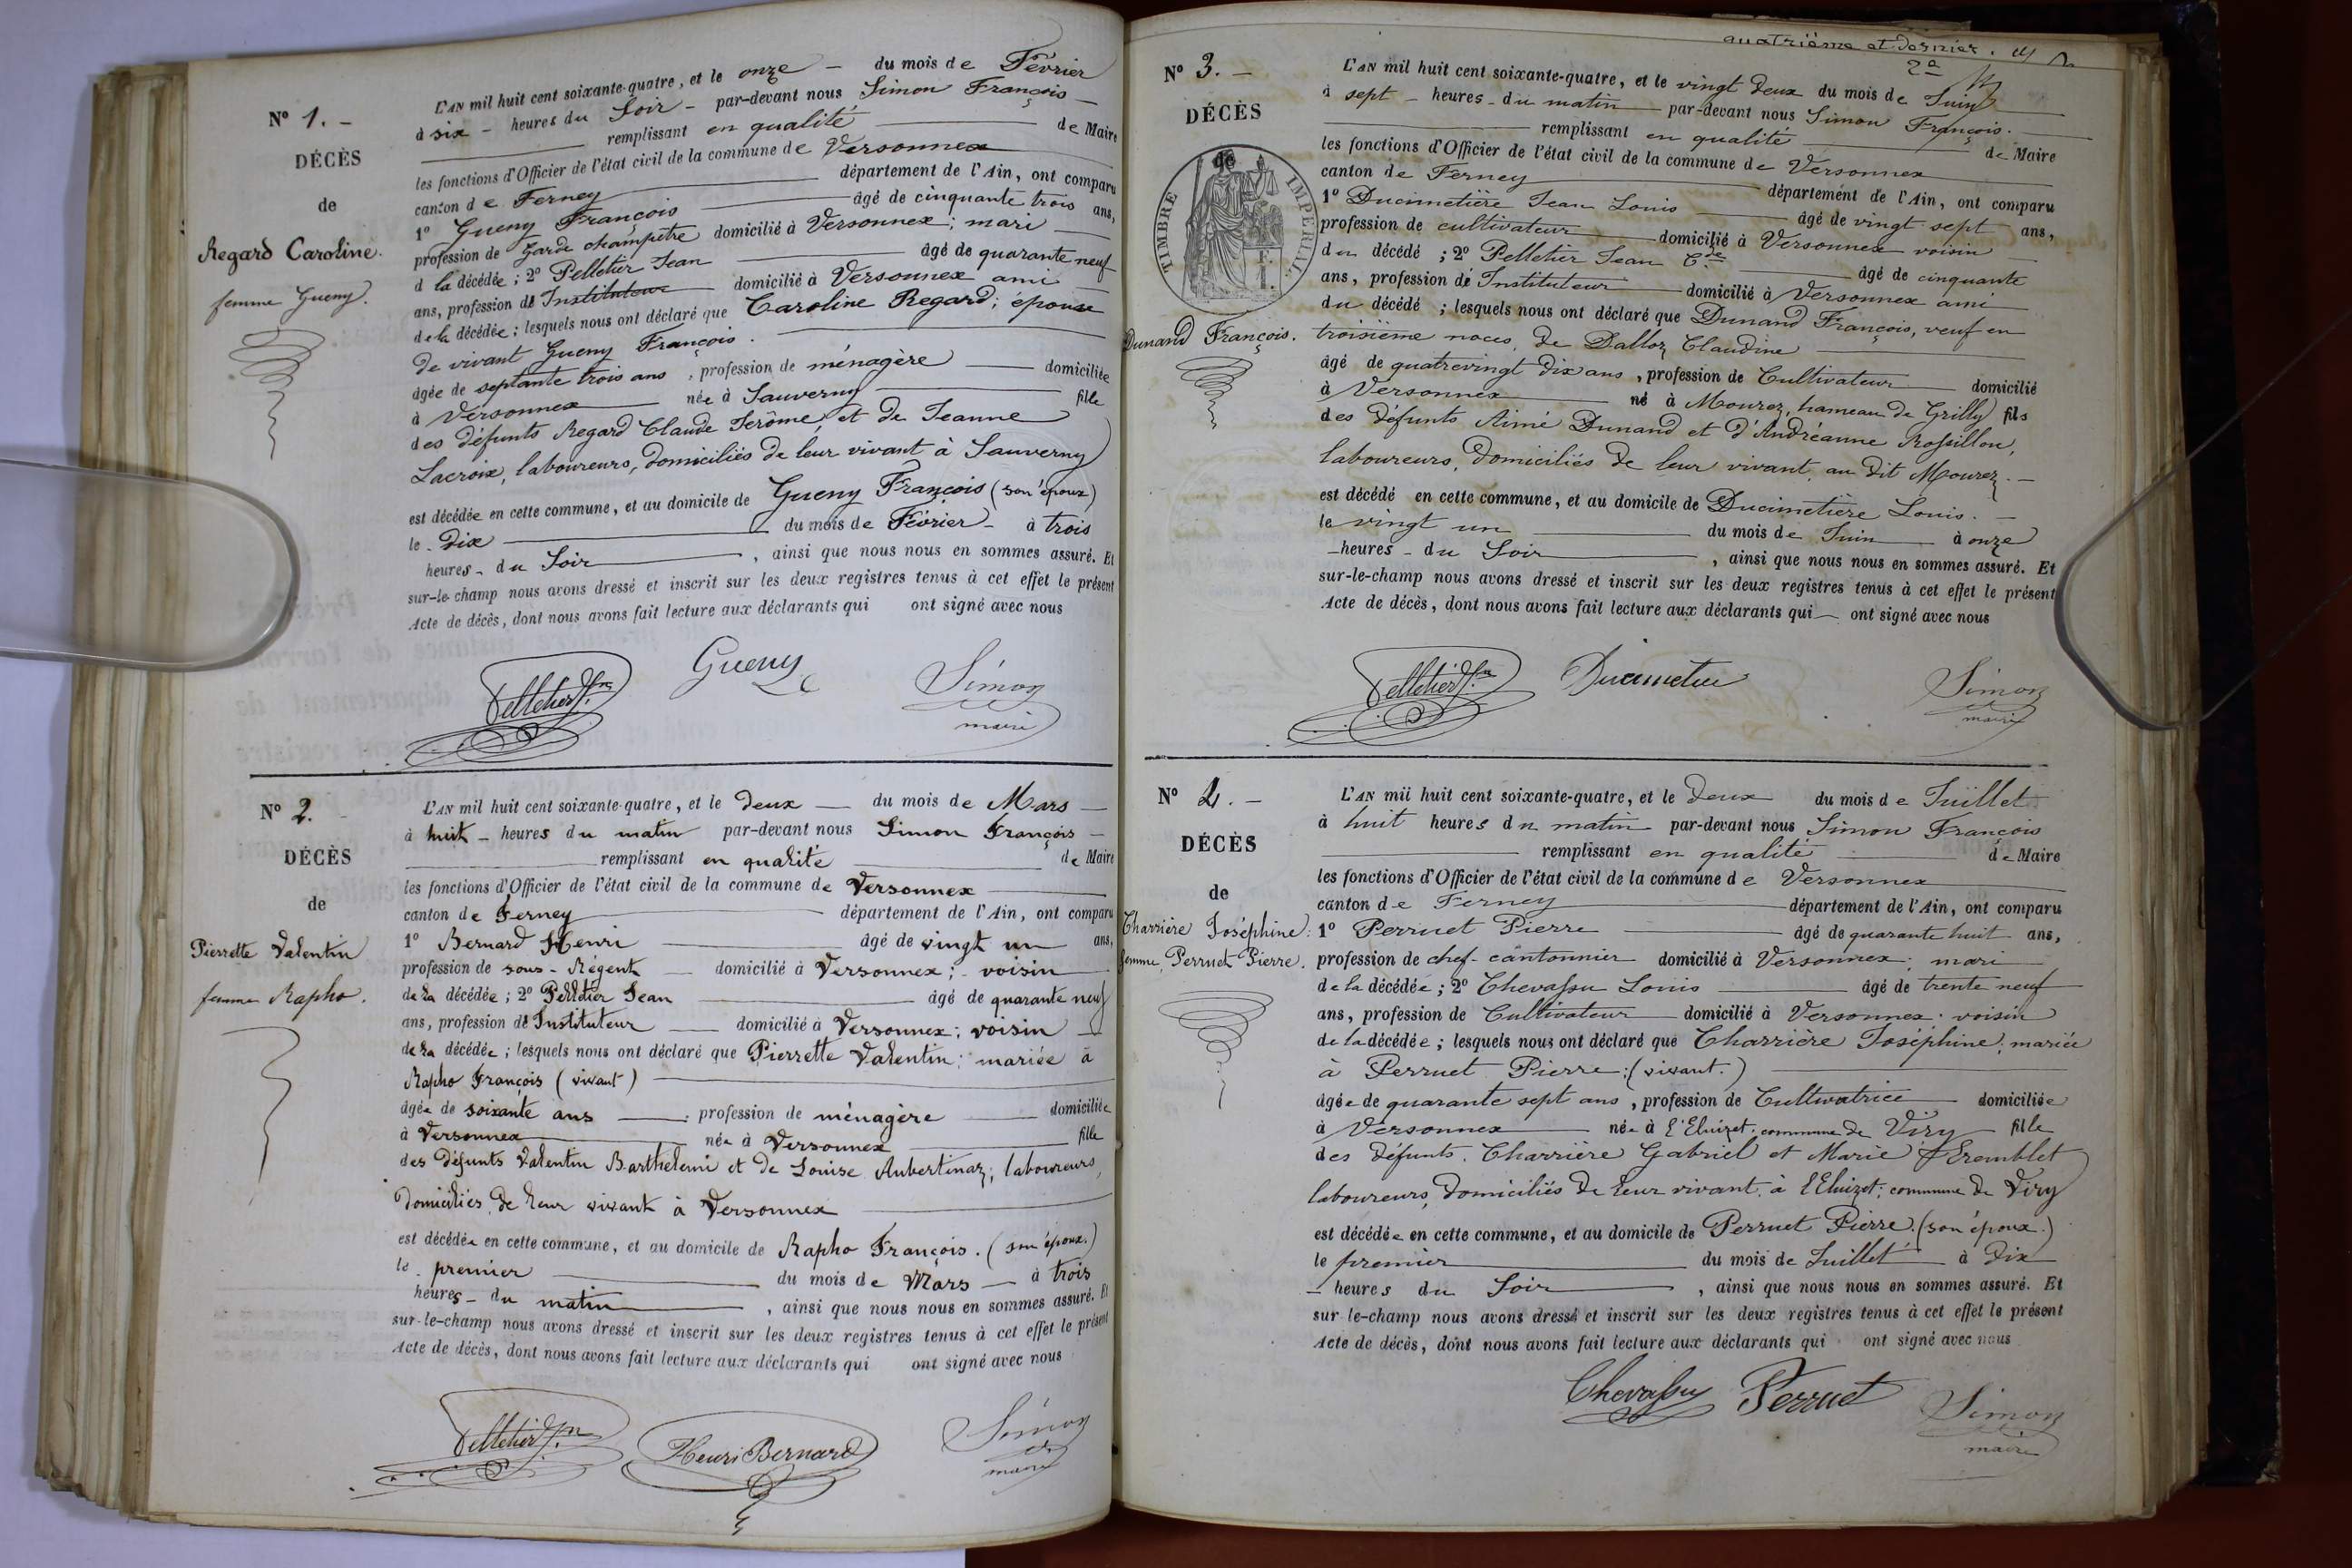 N° 1. –
DÉCÈS
de
Regard Caroline.
femme Gueny.
L'AN mil huit cent soixante-quatre, et le onze – du mois de Février
à six – heures du Soir – par-devant nous Simon François –
remplissant en qualité de Maire
les fonctions d'Officier de l'état civil de la commune de Versonnex
canton de Ferney département de l'Ain, ont comparu
1° Gueny François âgé de cinquante trois ans,
profession de Garde champêtre domicilié à Versonnex ; mari
d la décédée ; 2° Pelletier Jean âgé de quarante neuf
ans, profession de Instituteur domicilié à Versonnex ami
de la décédée ; lesquels nous ont déclaré que Caroline Regard ; épouse
de vivant Gueny François.
âgée de septante trois ans, profession de ménagère domiciliée
à Versonnex née à Sauverny fille
des défunts Regard Claude Jerôme, et de Jeanne
Lacroix, laboureurs, domiciliés de leur vivant à Sauverny
est décédée en cette commune, et au domicile de Gueny François (son époux)
le Dix du mois de Février – à trois
heures – du Soir, ainsi que nous nous en sommes assuré. Et
sur-le-champ nous avons dressé et inscrit sur les deux registres tenus à cet effet le présent
Acte de décès, dont nous avons fait lecture aux déclarants qui ont signé avec nous
Pelletier Jn Gueny Simon
maire
N° 2.
DÉCÈS
de
Pierrette Valentin
femme Rapho.
L'AN mil huit cent soixante-quatre, et le deux – du mois de Mars –
à huit – heures du matin par-devant nous Simon François –
remplissant en qualité de Maire
les fonctions d'Officier de l'état civil de la commune de Versonnex
canton de Ferney département de l'Ain, ont comparu
1° Bernard Henri âgé de vingt un ans,
profession de sous-Régent domicilié à Versonnex ; voisin
de la décédée ; 2° Pelletier Jean âgé de quarante neuf
ans, profession de Instituteur domicilié à Versonnex ; voisin
de la décédée ; lesquels nous ont déclaré que Pierrette Valentin ; mariée à
Rapho François (vivant)
âgée de soixante ans, profession de ménagère domiciliée
à Versonnex née à Versonnex fille
des défunts Valentin Barthelemi et de Louise Aubertinaz ; laboureurs,
domiciliés de leur vivant à Versonnex
est décédée en cette commune, et au domicile de Rapho François. (son époux.)
le premier du mois de Mars – à trois
heures – du matin, ainsi que nous nous en sommes assuré. Et
sur-le-champ nous avons dressé et inscrit sur les deux registres tenus à cet effet le présent
Acte de décès, dont nous avons fait lecture aux déclarants qui ont signé avec nous
Pelletier Jn Henri Bernard Simon
maire
quatrième et dernier.
N° 3. –
DÉCÈS
de
TIMBRE IMPÉRIAL
Dunand François.
L'AN mil huit cent soixante-quatre, et le vingt deux du mois de Juin
à sept – heures – du matin par-devant nous Simon François.
remplissant en qualité de Maire
les fonctions d'Officier de l'état civil de la commune de Versonnex
canton de Ferney département de l'Ain, ont comparu
1° Ducimetière Jean Louis âgé de vingt sept ans,
profession de cultivateur domicilié à Versonnex voisin
du décédé ; 2° Pelletier Jean Cde âgé de cinquante
ans, profession de Instituteur domicilié à Versonnex ami
du décédé ; lesquels nous ont déclaré que Dunand François, veuf en
troisième noces, de Dalloz Claudine
âgé de quatrevingt dix ans, profession de Cultivateur domicilié
à Versonnex né à Mourez, hameau de Grilly fils
des défunts Aimé Dunand et d'Andréanne Rossillon,
laboureurs, domiciliés de leur vivant, au dit Mourez. –
est décédé en cette commune, et au domicile de Ducimetière Louis. –
le vingt un du mois de Juin à onze
– heures – du Soir, ainsi que nous nous en sommes assuré. Et
sur-le-champ nous avons dressé et inscrit sur les deux registres tenus à cet effet le présent
Acte de décès, dont nous avons fait lecture aux déclarants qui ont signé avec nous
Pelletier Jn Ducimetière Simon
maire
N° 4. –
DÉCÈS
de
Charrière Joséphine.
femme Perruet Pierre.
L'AN mil huit cent soixante-quatre, et le deux du mois de Juillet
à huit heures du matin par-devant nous Simon François
remplissant en qualité de Maire
les fonctions d'Officier de l'état civil de la commune de Versonnex
canton de Ferney département de l'Ain, ont comparu
1° Perruet Pierre âgé de quarante huit ans,
profession de chef-cantonnier domicilié à Versonnex ; mari
de la décédée ; 2° Chevassu Louis âgé de trente neuf
ans, profession de Cultivateur domicilié à Versonnex ; voisin
de la décédée ; lesquels nous ont déclaré que Charrière Joséphine ; mariée
à Perruet Pierre ; (vivant.)
âgée de quarante sept ans, profession de Cultivatrice domiciliée
à Versonnex née à l'Eluizet, commune de Viry fille
des défunts. Charrière Gabriel et Marie Tremblet
laboureurs, domiciliés de leur vivant, à l'Eluizet ; commune de Viry
est décédée en cette commune, et au domicile de Perruet Pierre. (son époux.)
le premier du mois de Juillet à Dix
– heures du Soir, ainsi que nous nous en sommes assuré. Et
sur-le-champ nous avons dressé et inscrit sur les deux registres tenus à cet effet le présent
Acte de décès, dont nous avons fait lecture aux déclarants qui ont signé avec nous
Chevassu Perruet Simon
maire